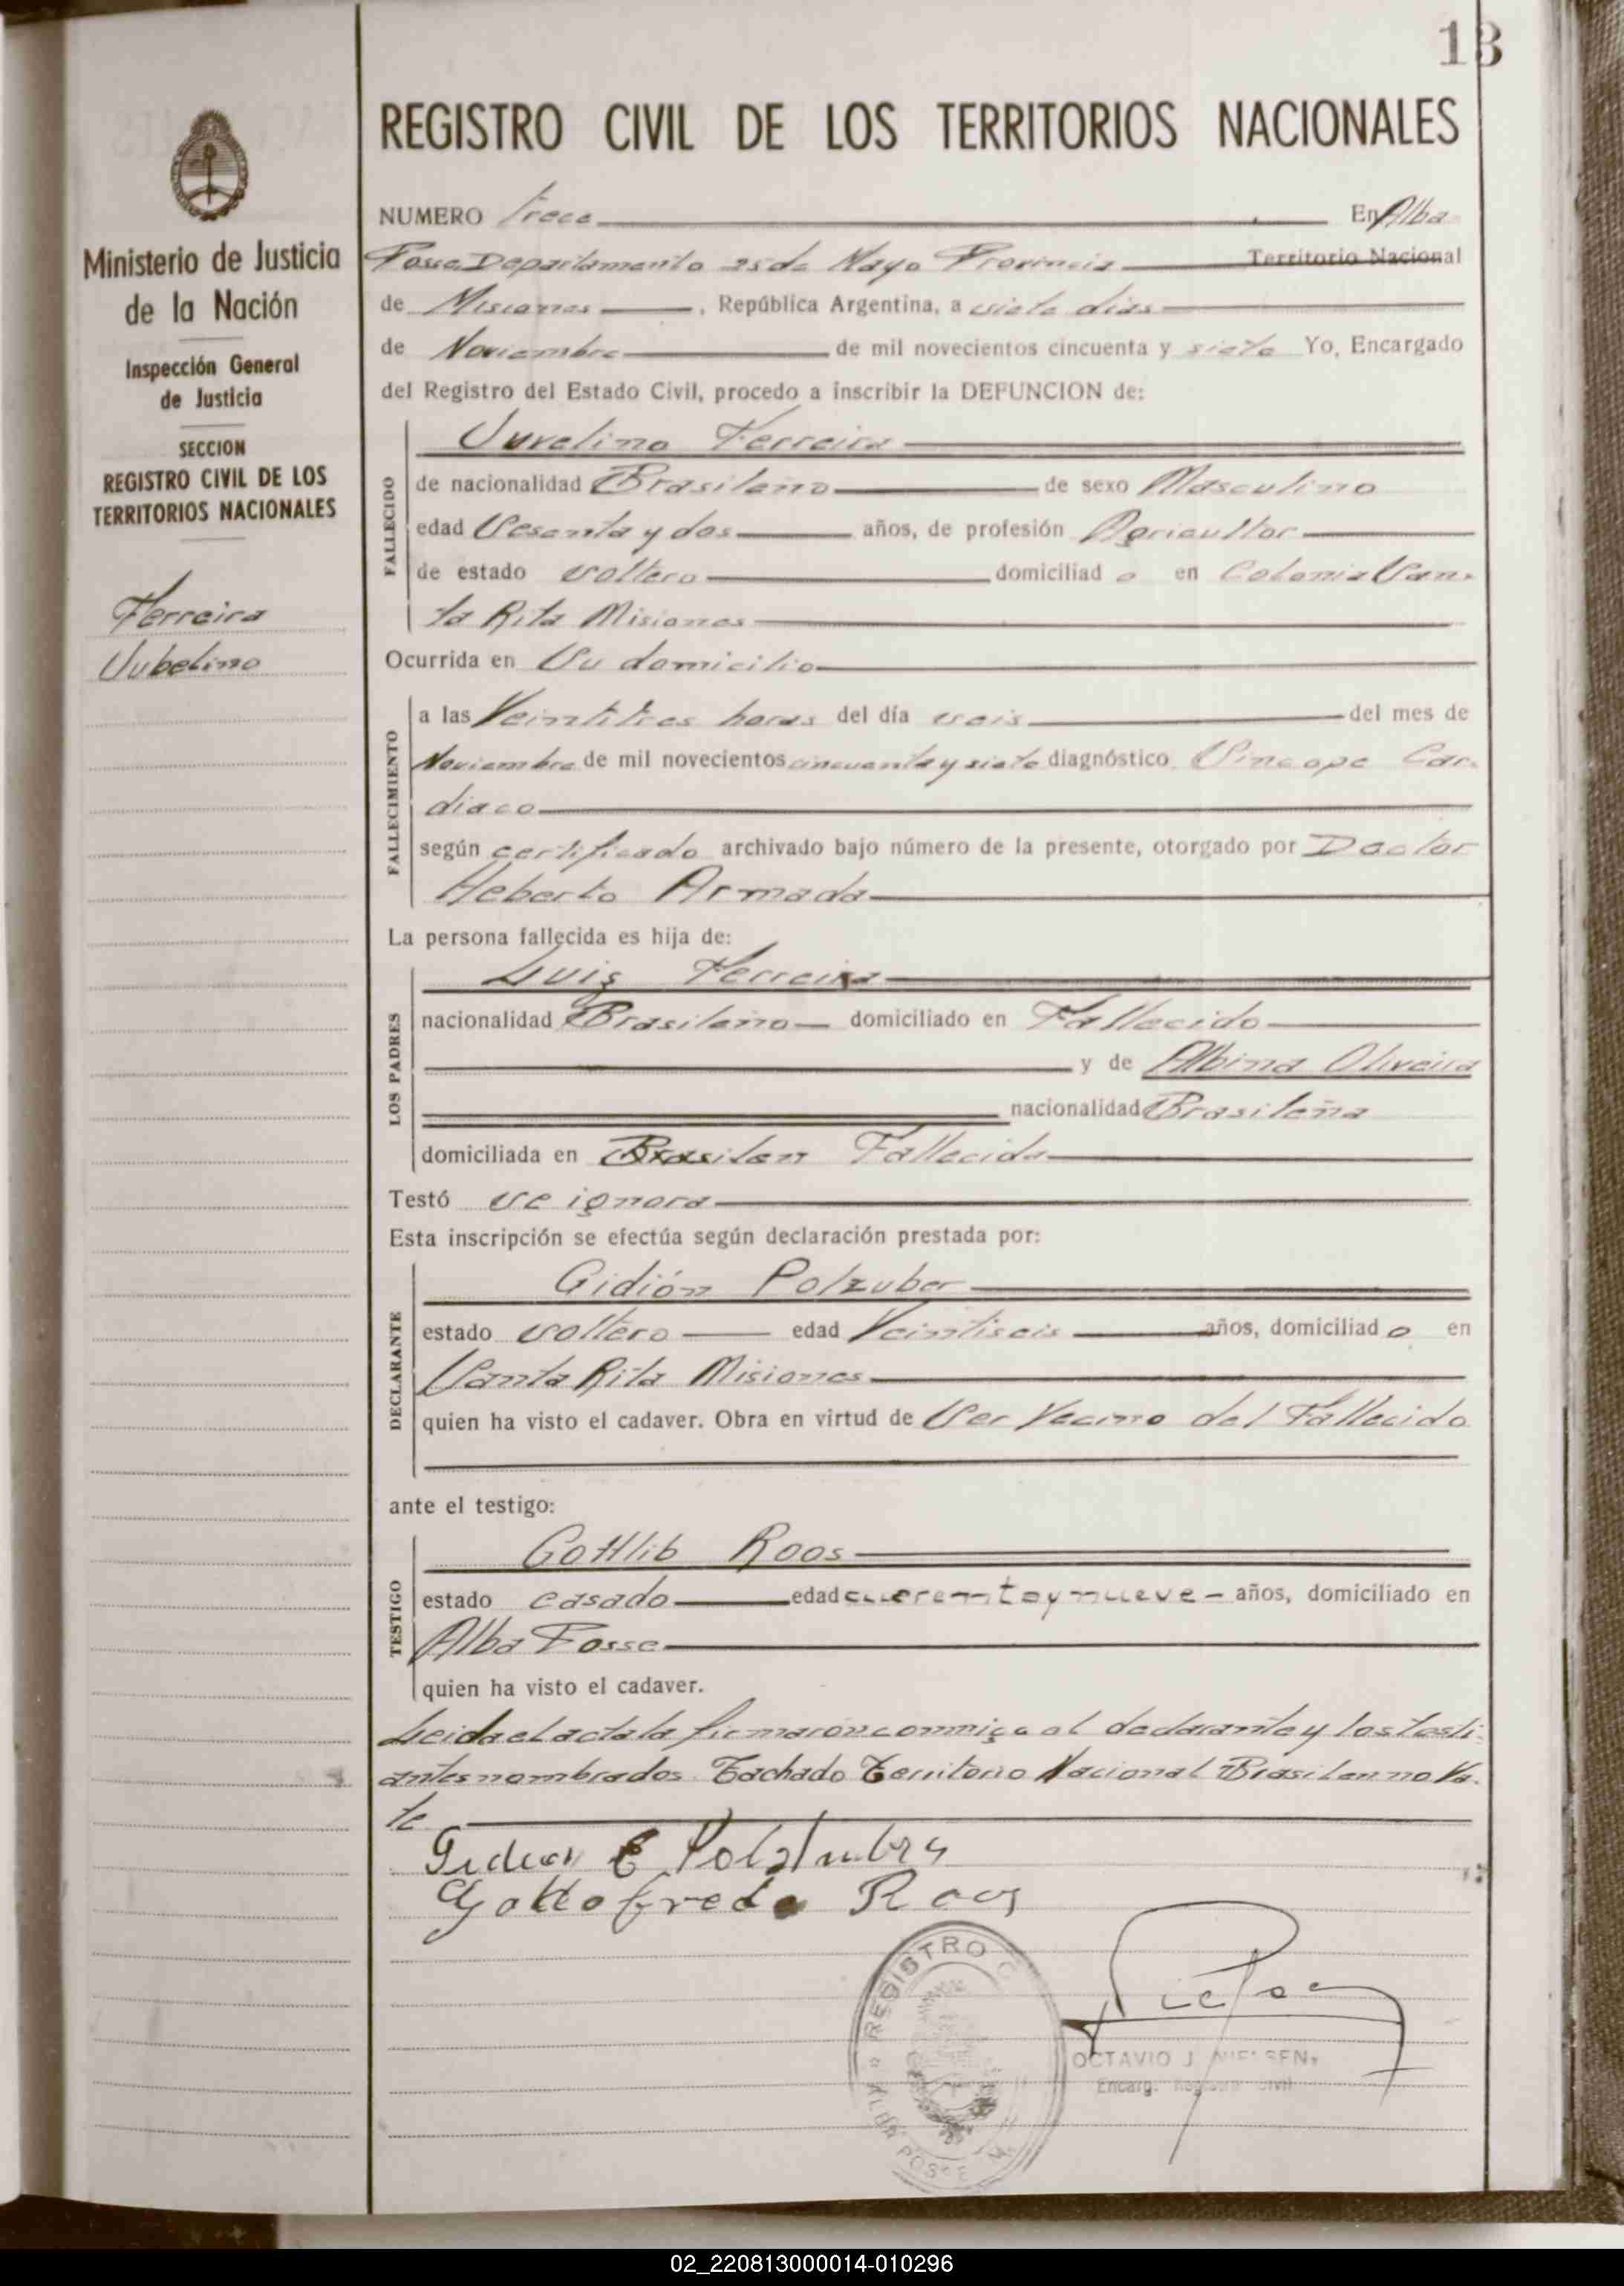 13
REGISTRO CIVIL DE LOS TERRITORIOS NACIONALES
Ministerio de Justicia
de la Nación
Inspección General
de Justicia
SECCION
REGISTRO CIVIL DE LOS
TERRITORIOS NACIONALES
Ferreira
Jubelino
NUMERO Trece En Alba
Posse Departamento 25 de Mayo Provincia Territorio Nacional
de Misiones, República Argentina, a siete dias
de Noviembre de mil novecientos cincuenta y siete Yo, Encargado
del Registro del Estado Civil, procedo a inscribir la DEFUNCION de:
FALLECIDO
Juvelino Ferreira
de nacionalidad Brasileño de sexo Masculino
edad Sesenta y dos años, de profesión Agricultor
de estado soltero domiciliad o en Colonia San-
ta Rita Misiones
Ocurrida en Su domicilio
FALLECIMIENTO
a las Veintitres horas del día seis del mes de
Noviembre de mil novecientos cincuenta y siete diagnóstico Sincope Car-
diaco
según certificado archivado bajo número de la presente, otorgado por Doctor
Heberto Armada
La persona fallecida es hija de:
LOS PADRES
Luis Ferreira
nacionalidad Brasileño domiciliado en Fallecido
y de Albina Oliveira
nacionalidad Brasileña
domiciliada en Brasilen Fallecida
Testó se ignora
Esta inscripción se efectúa según declaración prestada por:
DECLARANTE
Gidión Polzuber
estado soltero edad Veintiseis años, domiciliad o en
Santa Rita Misiones
quien ha visto el cadaver. Obra en virtud de Ser Vecino del Fallecido
ante el testigo:
TESTIGO
Gottlib Roos
estado casado edad cuarentaynueve años, domiciliado en
Alba Posse
quien ha visto el cadaver.
Leida el acta la firmaron conmigo el declarante y los testi-
antes nombrados Tachado Territorio Nacional Brasilen no Va-
le
Gottofredo Roos
REGISTRO C
ALBA POSSE M
OCTAVIO J. NIELSEN
Encarg. Registro Civil
02_220813000014-010296